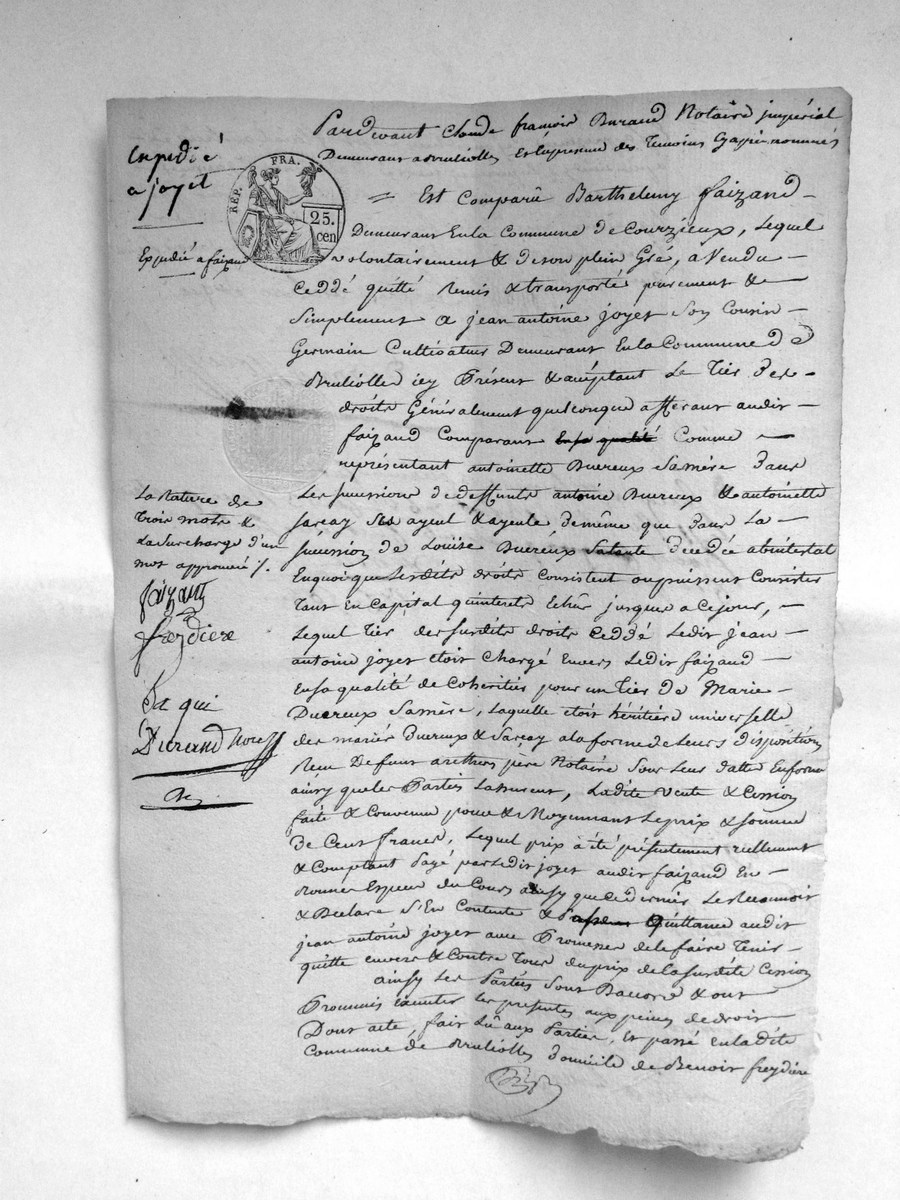 Pardevant Claude françois Durand Notaire jmpérial
Demeurant a Brulliolles Et En presence des Temoins Cy après nommés
Expedié
a joyet
REP. FRA.
25.
cen
Expedié a faizand
= Est Comparû Barthelemy faizand –
Demeurant En la Commune de Courzieux, Lequel
volontairement & de son plein Gré, a Vendu –
Ceddé quitté Remis & transporté purement &
Simplement a jean antoine joyet Son Cousin –
Germain Cultivateur Demeurant En la Commune de
Brulliolle icy Présent & acceptant Le Tier des
droits Généralement quelconque afferant audit –
faizand Comparant En sa qualité Comme –
représentant antoinette Ducreux Sa mère dans
Les successions de deffunts antoine Ducreux & antoinette
Sarcay Ses ayeul & ayeule, de même que dans La –
succession de Louise Ducreux Sa tante décedée abintestat
En quoi que Lesdits droits Consistent ou puissent Consister
Tant En Capital qu'interets Echus jusques a Ce jour, –
Lequel Tier des susdits droits Ceddé Ledit jean –
antoine joyet Etoit Chargé Envers Ledit faizand –
En sa qualité de Coheritier pour un Tier de Marie –
Ducreux Sa mère, Laquelle étoit héritière universelle
des mariés Ducreux & Sarcay a la forme de Leurs disposition
Recu Defunt père Notaire Sous Leur datte En forme
ainsy que les Parties L'assurent, Ladite Vente & Cession
faite & Convenue pour & Moyennant Le prix & somme
De Cent francs, Lequel prix a été présentement réellement
& Comptant Payé par Ledit joyet audit faizand En –
Nonner Especes du Cours ainsy que Ce dernier Le Reconnoit
& Declare S'En Contente & Passe Quittance audit
jean antoine joyet avec Promesse de le faire Tenir –
quitte envers & Contre Tous du prix de la susdite Cession
ainsy Les Parties Sont D'accord & ont
Promis Executer Les presentes aux peines de droit
Dont acte, fait Lû aux Parties, Et passé En la dite
Commune de Brulliolles domicile de Benoit freydière
La Rature de
Trois mots &
La Surcharge d'un
mot approuvée /.
faizand
freydiere
Durand Nore